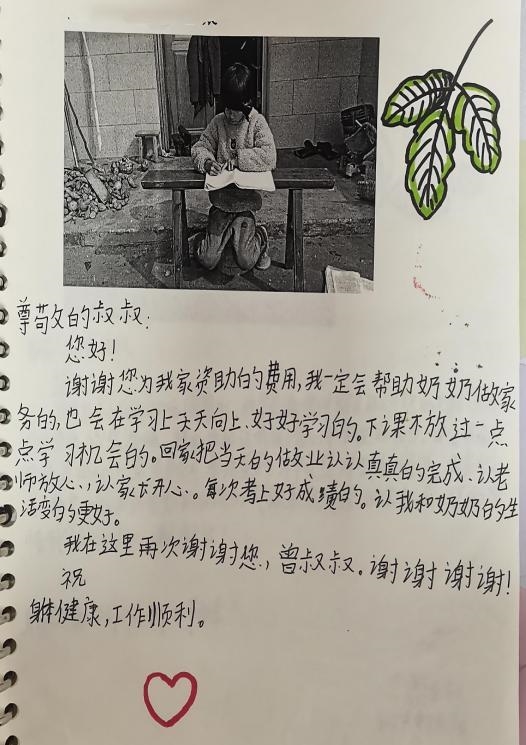 尊敬的叔叔：
您好！
谢谢您为我家资助的费用，我一定会帮助奶奶做家
务的，也会在学习上天天向上、好好学习的。下课不放过一点
点学习机会的。回家把当天的做业认认真真的完成、认老
师放心、认家长开心。每次考上好成绩的。认我和奶奶的生
活变的更好。
我在这里再次谢谢您，曾叔叔。谢谢谢谢！
祝
身体健康，工作顺利。